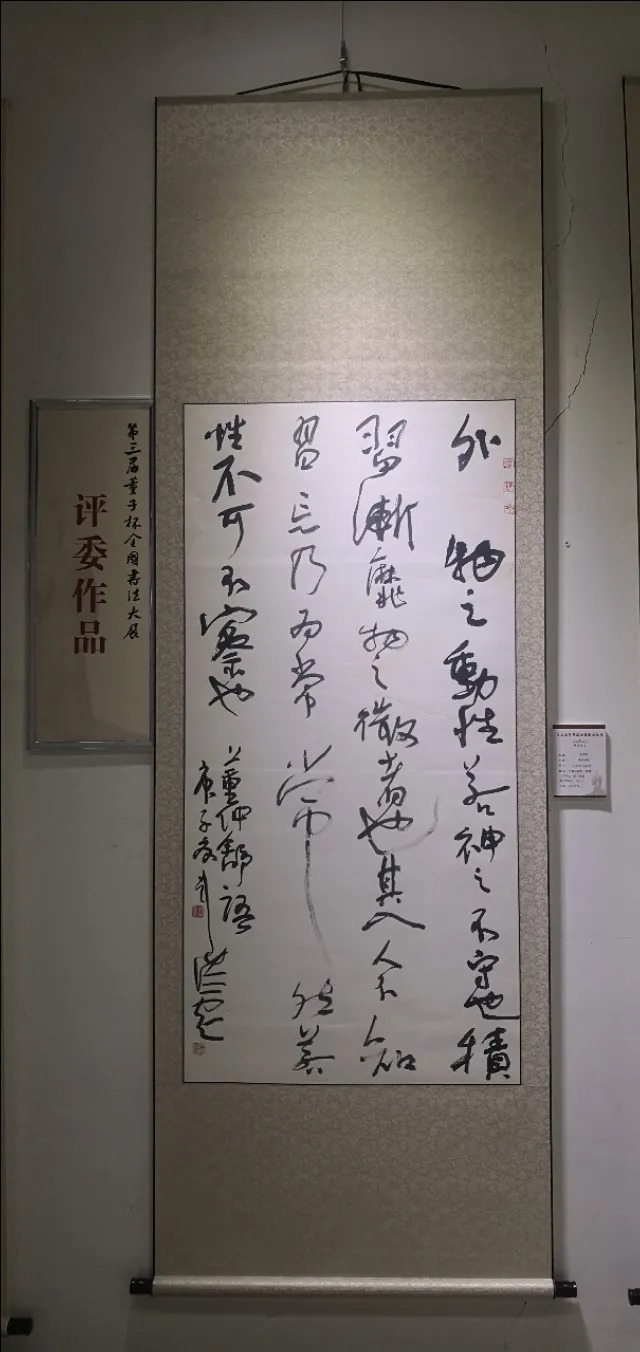 外物之動性若神之不守也積
習漸靡物之微者也其入人不知
習忘乃為常然若
性不可不察也
董仲舒語
庚子
第三届董子杯全國書法大展
评委作品